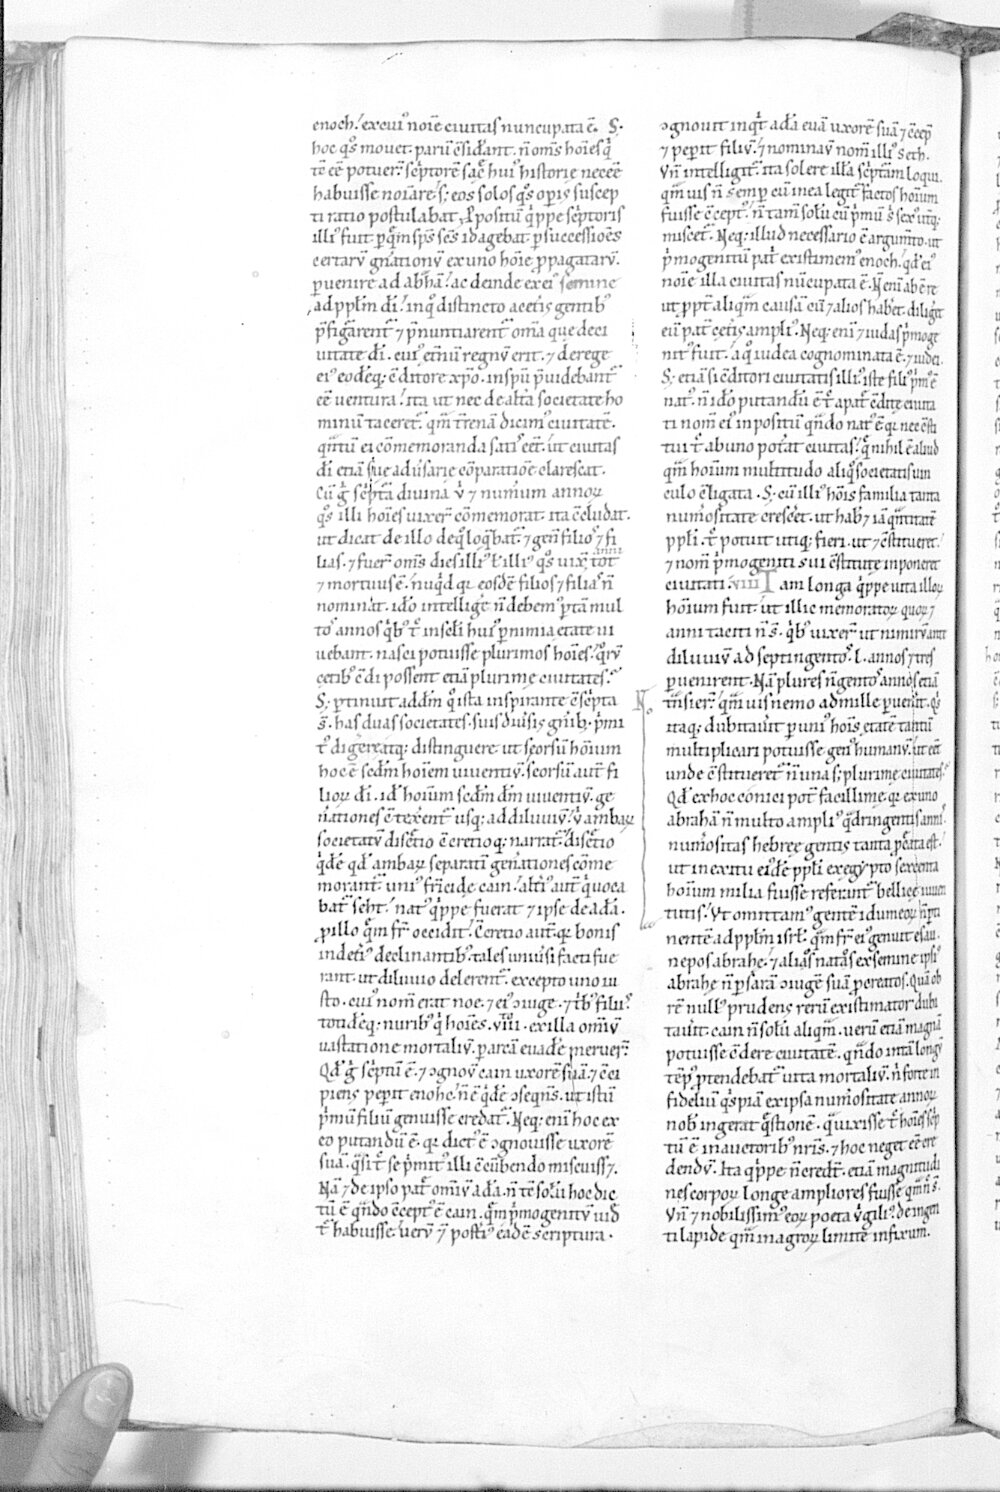 enoch! ex cui᷒ noīe ciuitas nuncupata ē. S;
hoc q̊s mouet. parū ↄ̄sidꝛant. n̄ om̄s hoīes q̇
tc̄ ēē potueꝛ̄. sc̄ptorē sac̄ꝛ hui᷒ historie necēē
habuisse noīare. s; eos solos q̊s opis̄ suscep
ti ratio postulabat. ꝓpositū q̇ppe sc̄ptoris
illi᷒ fuit. ꝑ quē sp̄s sc̄s id agebat. ꝑ successiōes
certarū gnationū ex uno hoīe ꝓpagatarū.
ꝑuenire ad abhā! ac deinde ex ei᷒ semine
ad ppl̄m dī! in q̊ distincto a cetīs gentib᷒
p̄figarent̄ ⁊ p̄nuntiarent̄ om̄a que de ci
uitate dī. cui᷒ et̄nū regnū erit. ⁊ de rege
ei᷒ eodēq; ↄ̄ditore xp̄o. in spū p̄uidebant̄
ēē ventura! ita ut nec de alt̄a societate ho
minū taceret̄. quā tr̄enā dicim᷒ ciuitatē.
q̄ntū ei cōmemoranda sati᷒ eēt. ut ciuitas
dī etiā sue aduīsarie cōparatiōe clarescat.
Cū g̊ sc̄ptꝛa diuina v̄ ⁊ num̄um annoꝝ
q̊s illi hoīes uixeꝛ̄ cōmemorat. ita ↄ̄cludat.
ut dicat de illo de q̊ loq̄bat̄. ⁊ gen̄ filios ⁊ fi
lias. ⁊ fueꝛ̄ om̄s dies illi᷒ ł illi᷒ q̊s uix̄ tot anni
⁊ mortuus ē. nūqd q̇ eosdē filios ⁊ filias n̄
nominat. idō intellig̊e n̄ debem᷒ ꝑ tā mul
to᷒ annos q̇b᷒ tc̄ in secl̄i hui᷒ p̄nimia etate ui
uebant. nasci potuisse plurimos hoīes! q̇rū
cetib᷒ ↄ̄di possent etiā plurime ciuitates.
S; ꝑtinuit ad dm̄ q̊ ista inspirante ↄ̄sc̄pta
s̄. has duas societates. suis diuīsis gn̄ib; p̄mi
t᷒ dig̊ere atq; distinguere. ut seorsū hoīum
hoc ē scdm̄ hoīem uiuentiū. seorsū aut̄ fi
lioꝝ dī. id ē hoīum scdm̄ dm̄ uiuentiū. ge
nationes ↄ̄texent̄ usq; ad diluuiū! v̄ ambaꝝ
societatū disc̄tio ↄ̄cretioq; narrat̄. disc̄tio
q̇dē qd ambaꝝ separatī gen̄ationes cōme
morant̄. uni᷒ fr̄icide cain! alti᷒ aut̄ q̇ uoca
bat̄ seht! nat᷒ q̇ppe fuerat ⁊ ipse de adā.
ꝓ illo quē fr̄ occidit! ↄ̄cretio aut̄. q̇ bonis
in deti᷒ declinantib᷒. tales uniūsi facti fue
rant. ut diluuio delerent̄. excepto uno iu
sto. cui᷒ nom̄ erat noe. ⁊ ei᷒ ↄiuge. ⁊ t̄b᷒ filii᷒
totidēq; nurib᷒. q̇ hoīes. viii. ex illa om̄iū
uastatione mortaliū. ꝑ arcā euadē᷒ meruer̄.
Qd g̊ sc̄ptū ē. ⁊ ↄgnoū cain uxorē suā ⁊ ↄ̄ci
piens pep̄it enohc! n̄ ē q̇dē ↄseqn̄s. ut istū
p̄mū filiū genuisse eredat̄. Neq; enī hoc ex
eo putandū ē. q̇ dict᷒ ē ↄgnouisse uxorē
suā. q̊si tc̄ se p̄mit᷒ illi ↄ̄cūbendo miscuiss;.
Nā ⁊ de ipso patē omīū adā. n̄ tc̄ solū hoc dic
tū ē q̄ndo ↄ̄cept᷒ ē cain. quē p̄mogenitū uid
t᷒ habuisse. verū ⁊ post᷒i᷒ eadē scriptura.
ↄgnouit inqt adā euā uxorē suā ⁊ ↄ̄cep̄
⁊ peperit filiū! ⁊ nominaū nom̄ illi᷒ seth.
Vn̄ intelligit̄. ita solere illā sc̄ptꝛam loqui.
quāuis n̄ semp cū in ea legit̄ factos hoīum
fuisse ↄ̄cept᷒. n̄ tam̄ solū cū p̄mū s̄ sexus utq;
miscet̄. Neq; illud necessario ē argumto. ut
p̄mogenitū pat̄ existimem᷒ enoch! qd ei᷒
noīe illa ciuitas nūcupata ē. N̄ enī ab ↄ̄re
ut ppt̄ aliqm̄ causā cū ⁊ alios habet̄. diligēt
eū pat̄ cetīs ampli᷒. Neq; enī ⁊ iudas p̄moge
nit᷒ fuit. a q̊ iudea cognominata ē. ⁊ iudei.
S; etiā si ↄ̄ditori ciuitatis illi᷒ iste fili᷒ p̄m᷒ ē
nat᷒. n̄ idō putandū ē tc̄ a patē ↄ̄dite ciuita
ti nom̄ ei᷒ inpositū q̄ndo nat᷒ ē. q̇ nec ↄ̄sti
tui tc̄ ab uno potat ciuitas! q̄ nihil ē aliud
quā hoīum multitudo aliq̊ societatis uin
culo ↄ̄ligata. S; cū illi᷒ hoīs familia tanta
num̄ositate cresceret. ut hab; iā qn̄titatē
ppl̄i. tc̄ potuit utiq; fieri. ut ⁊ ↄ̄stitueret!
⁊ nom̄ p̄mogeniti sui ↄ̄stitute inponeret
ciuitati. viiii Tam longa q̇ppe uita illoꝝ
hoīum fuit! ut illic memoratoꝝ quoꝝ ⁊
anni taciti n̄ s̄. q̇b᷒ uixer̄ ut nimirū ante
diluuiū ad septingento᷒. l. annos ⁊ tres
ꝑuenirent. Nā plures n̄gento᷒ annos etiā
tn̄sier̄. quāuis nemo ad mille ꝑuenīt. Q̊s
itaq; dubitaūt ꝑ uni᷒ hoīs etatē tantū
multiplicari potuisse gen᷒ humanū. ut eēt
unde ↄ̄stitueret̄ n̄ una s; plurime ciuitates?
Qd ex hoc conici pot̄ facillime. q̇ ex uno
abrahā n̄ multo ampli᷒ q̇dringentis annis
num̄ositas hebreę gentis tanta ꝓcata est.
ut in exitu ei᷒dē ppl̄i ex egypto sexcenta
hoīum milia fuisse referunt̄ bellice iuuen
tutis! Vt omittam᷒ gentē idumeoꝝ n̄ pti
nentē ad ppl̄m isrł. quā fr̄ ei᷒ genuit esau.
nepos abrahe. ⁊ alias natas ex semine ipsi᷒
abrahe n̄ ꝑ sarā ↄiugē suā ꝓcreatos. Quā ob
rē null᷒ prudens rerū existimator dubi
tauit̄. cain n̄ solū aliqm̄. uerū etiā magnā
potuisse ↄ̄dere ciuitatē. q̄ndo in tā longū
tēp᷒ ꝓtendebat̄ uita mortaliū. n̄ forte in
fideliū q̊spiā ex ipsa num̄ositate annoꝝ
nob̄ ingerat q̄stionē. q̄ uixisse tc̄ hoīes sc̄p
tū ē in auctorib᷒ nr̄is. ⁊ hoc neget ēē cre
dendū. Ita q̇ppe n̄ credt̄. etiā magnitudi
nes corpoꝝ longe ampliores fuisse quā n̄ s̄.
Vn̄ ⁊ nobilissim᷒ eoꝝ poeta v̄gili᷒ de ingen
ti lapide quē in agroꝝ limite infixum.
N.